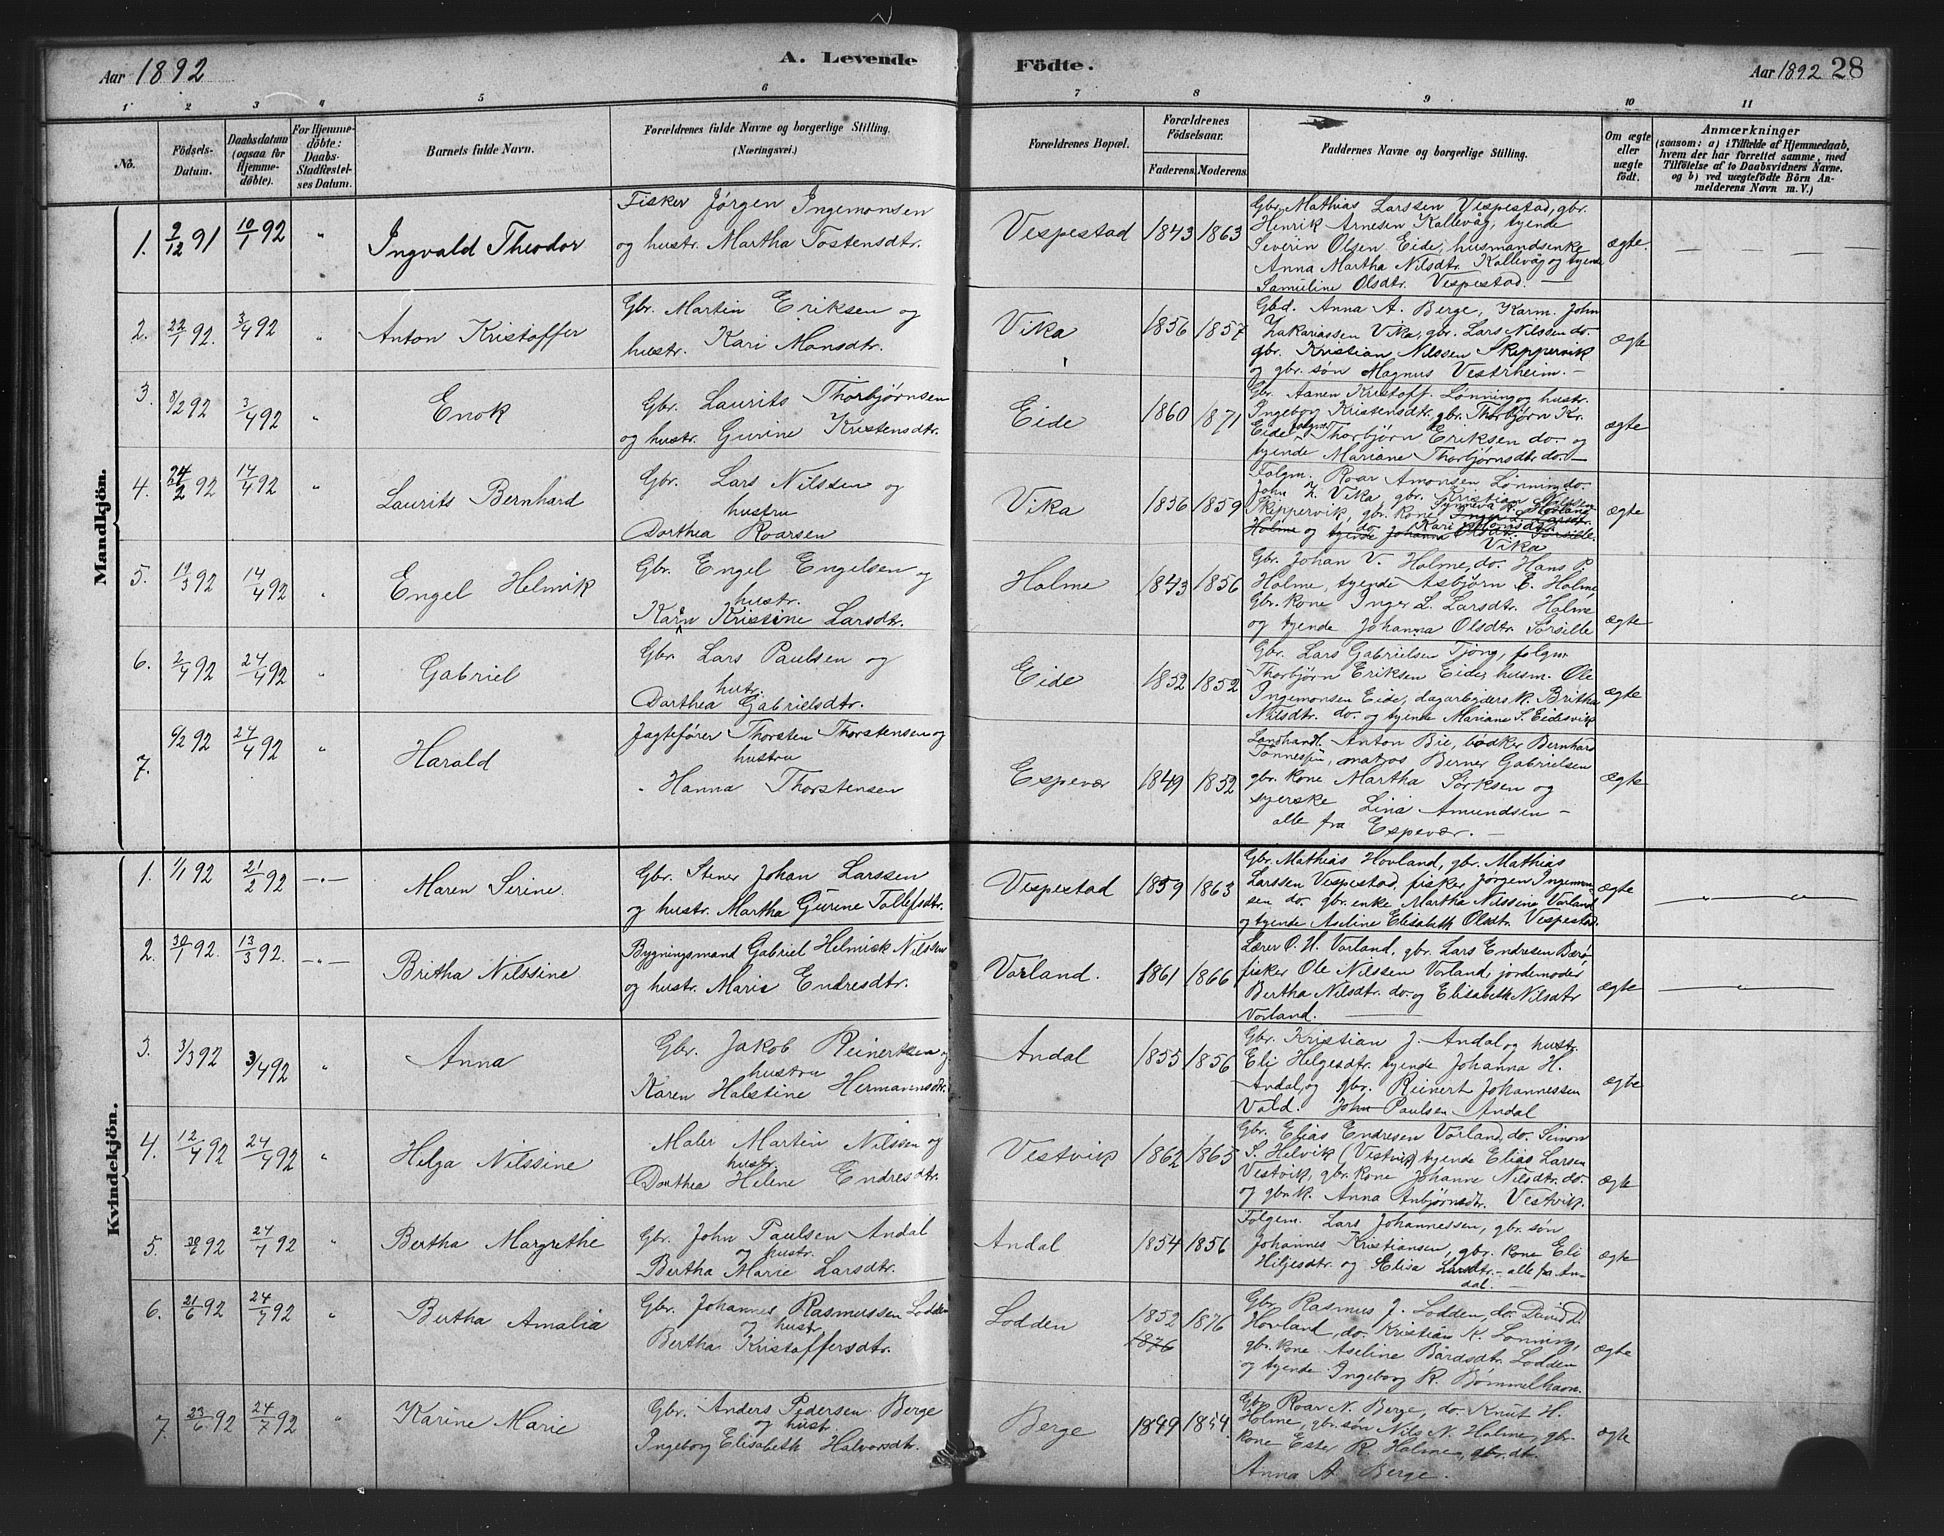 Aar 1892 A. Levende Födte. Aar 1892 28
1 2 3 4 5 6 7 8 9 10 11
No.
Födsels-
Datum.
Daabsdatum
(ogsaa for
Hjemme-
döbte).
For Hjemme-
döbte:
Daabs-
Stadfæstel-
ses Datum.
Barnets fulde Navn.
Forældrenes fulde Navne og borgerlige Stilling.
(Næringsvei.)
Forældrenes Bopæl.
Forældrenes
Födselsaar.
Faderens. Moderens.
Faddernes Navne og borgerlige Stilling.
Om ægte
eller
uægte
født.
Anmærkninger
(saasom: a) i Tilfælde af Hjemmedaab,
hvem der har forrettet samme, med
Tilföielse af to Daabsvidners Navne,
og b) ved uægtefödte Börn An-
melderens Navn m. V.)
Mandkjön.
1. 9/12 91 10/1 92 " Ingvald Theodor
Fisker Jørgen Ingemonsen
og hustr. Martha Tostensdtr.
Vespestad 1843 1863
Gbr. Mathias Larssen Vespestad, gbr.
Henrik Arnesen Kallevåg, tyende
Severin Olsen Eide, husmandsenke
Anna Martha Nilsdtr. Kallevåg og tyende
Samueline Olsdtr. Vespestad. —
ægte. — — —
2. 22/1 92. 3/4 92 " Anton Kristoffer
Gbr. Martin Eriksen og
hustr. Kari Monsdtr.
Vika 1856 1857
Gbd. Anna A. Berge, Karm. John
Zakariassen Vika, gbr. Lars Nilssen do.
gbr. Kristian Nilssen Skippervik
og gbr. søn Magnus Vestrheim. —
ægte
3. 8/2 92 3/4 92 " Enok
Gbr. Laurits Thorbjørnsen
og hustr. Gurine Kristensdtr.
Eide 1860 1871
Gbr. Aanen Kristoff. Lønning og hustr.
Ingeborg Kristensdtr, gbr. Thorbjørn Kr.
Eide, folgm. Thorbjørn Eriksen do. og
tyende Mariane Thorbjørnsdtr do. —
ægte
4. 24/2 92 14/4 92 " Laurits Bernhard
Gbr. Lars Nilssen og
hustru
Dorthea Roarsen
Vika 1856 1859
Folgm. Roar Amonsen Lønning, do.
John Z. Vika, gbr. Kristian Nilssen
Skippervik, gbr. kone Synneva K. Hovland
Holme og do. Kari Monsdtr.
Vika
ægte
5. 19/3 92 14/4 92 " Engel Helmik
Gbr. Engel Engelsen og
hustr.
Karn Kristine Larsdtr.
Holme 1843 1856
Gbr. Johan V. Holme, do. Hans P.
Holme, tyende Asbjørn E. Holme,
Gbr. kone Inger L. Larsdtr. Holme
og tyende Johanna Olsdtr. Sørsille
ægte
6. 2/4 92 24/4 92 " Gabriel
Gbr. Lars Paulsen og
hustr.
Dorthea Gabrielsdtr.
Eide 1852 1852
Gbr. Lars Gabrielsen Tjong, folgm.
Thorbjørn Eriksen Eide, husm. Ole
Ingemonsen Eide, dagarbeiders k. Britha
Nilsdtr. do. og tyende Mariane S. Eidesvik
ægte
7. 6/2 92 24/4 92 " Harald
Jagtefører Thorsten Thorstensen og
hustru
Hanna Thorstensen
Espevær 1849 1852
Landhandl. Anton Bie, bødker Bernhard
Tønnesen, matros Berner Gabrielsen
gbr. kone Martha Sjursen og
syerske Lina Amundsen —
alle fra Espevær. —
ægte
Kvindekjön.
1. 1/1 92 21/2 92 — " — Maren Serine
Gbr. Stener Johan Larssen
og hustr. Martha Gurine Tollefsdtr.
Vespestad 1859 1863
Gbr. Mathias Hovland, gbr. Mathias
Larssen Vespestad, fisker Jørgen Ingemon-
sen do. gbr. enke Martha Nilssine Vorland
og tyende Aseline Elisabeth Olsdtr. Vespestad.
ægte — " — " —
2. 30/1 92. 13/3 92. — " — Britha Nilssine
Bygningsmand Gabriel Helmick Nilssen
og hustr. Marie Endresdtr.
Vorland. 1861 1866
Lærer O. N. Vorland, gbr. Lars Endresen Børø,
fisker Ole Nilssen Vorland, jordemoder
Bertha Nilsdtr. do. og Elisabeth Nilsdtr
Vorland. —
ægte — " —
3. 3/3 92 3/4 92 " Anna
Gbr. Jakob Reinertsen og
hustru
Karen Halstine Hermannsdtr.
Andal 1855 1856
Gbr. Kristian J. Andal og hustr.
Eli Helgesdtr. tyende Johanna H.
Andal, og gbr. Reinert Johannessen
Vald. John Paulsen Andal
ægte
4. 12/4 92 24/4 92 " Helga Nilssine
Maler Martin Nilssen og
hustr.
Dorthea Helene Endresdtr.
Vestvik 1862 1865
Gbr. Elias Endresen Vorland, do. Simon
S. Helvik (Vestvik) tyende Elias Larsen
Vestvik, gbr. kone Johanne Nilsdtr. do.
og gbr k. Anna Anbjørnsdtr. Vestvik.
ægte
5. /6 92 24/7 92 " Bertha Margrethe
Gbr. John Paulsen Andal
og hustr.
Bertha Marie Larsdtr.
Andal 1854 1856
Folgem. Lars Johannessen, gbr. søn
Johannes Kristiansen, gbr. kone Eli
Helgesdtr. og Elisa Larsdtr. — alle fra An-
dal.
ægte
6. 21/6 92 24/7 92 " Bertha Amalia
Gbr. Johannes Rasmussen Lodden
og hustr
Bertha Kristoffersdtr.
Lodden 1852 1876
1876
Gbr. Rasmus J. Lodden, do. David D.
Hovland, do. Kristian K. Lønning,
gbr. kone Aseline Bårdsdtr. Lodden
og tyende Ingeborg R. Bømmelhavn.
ægte
7. 23/6 92 24/7 92 " Karine Marie
Gbr. Anders Pedersen Berge
og hustr.
Ingeborg Elisabeth Halvorsdtr.
Berge 1849 1854
Gbr. Roar N. Berge, do. Knut H.
Holme, gbr. søn Nils N. Holme, gbr.
kone Ester R. Holme, gbr. dtr.
Anna A. Berge.
ægte